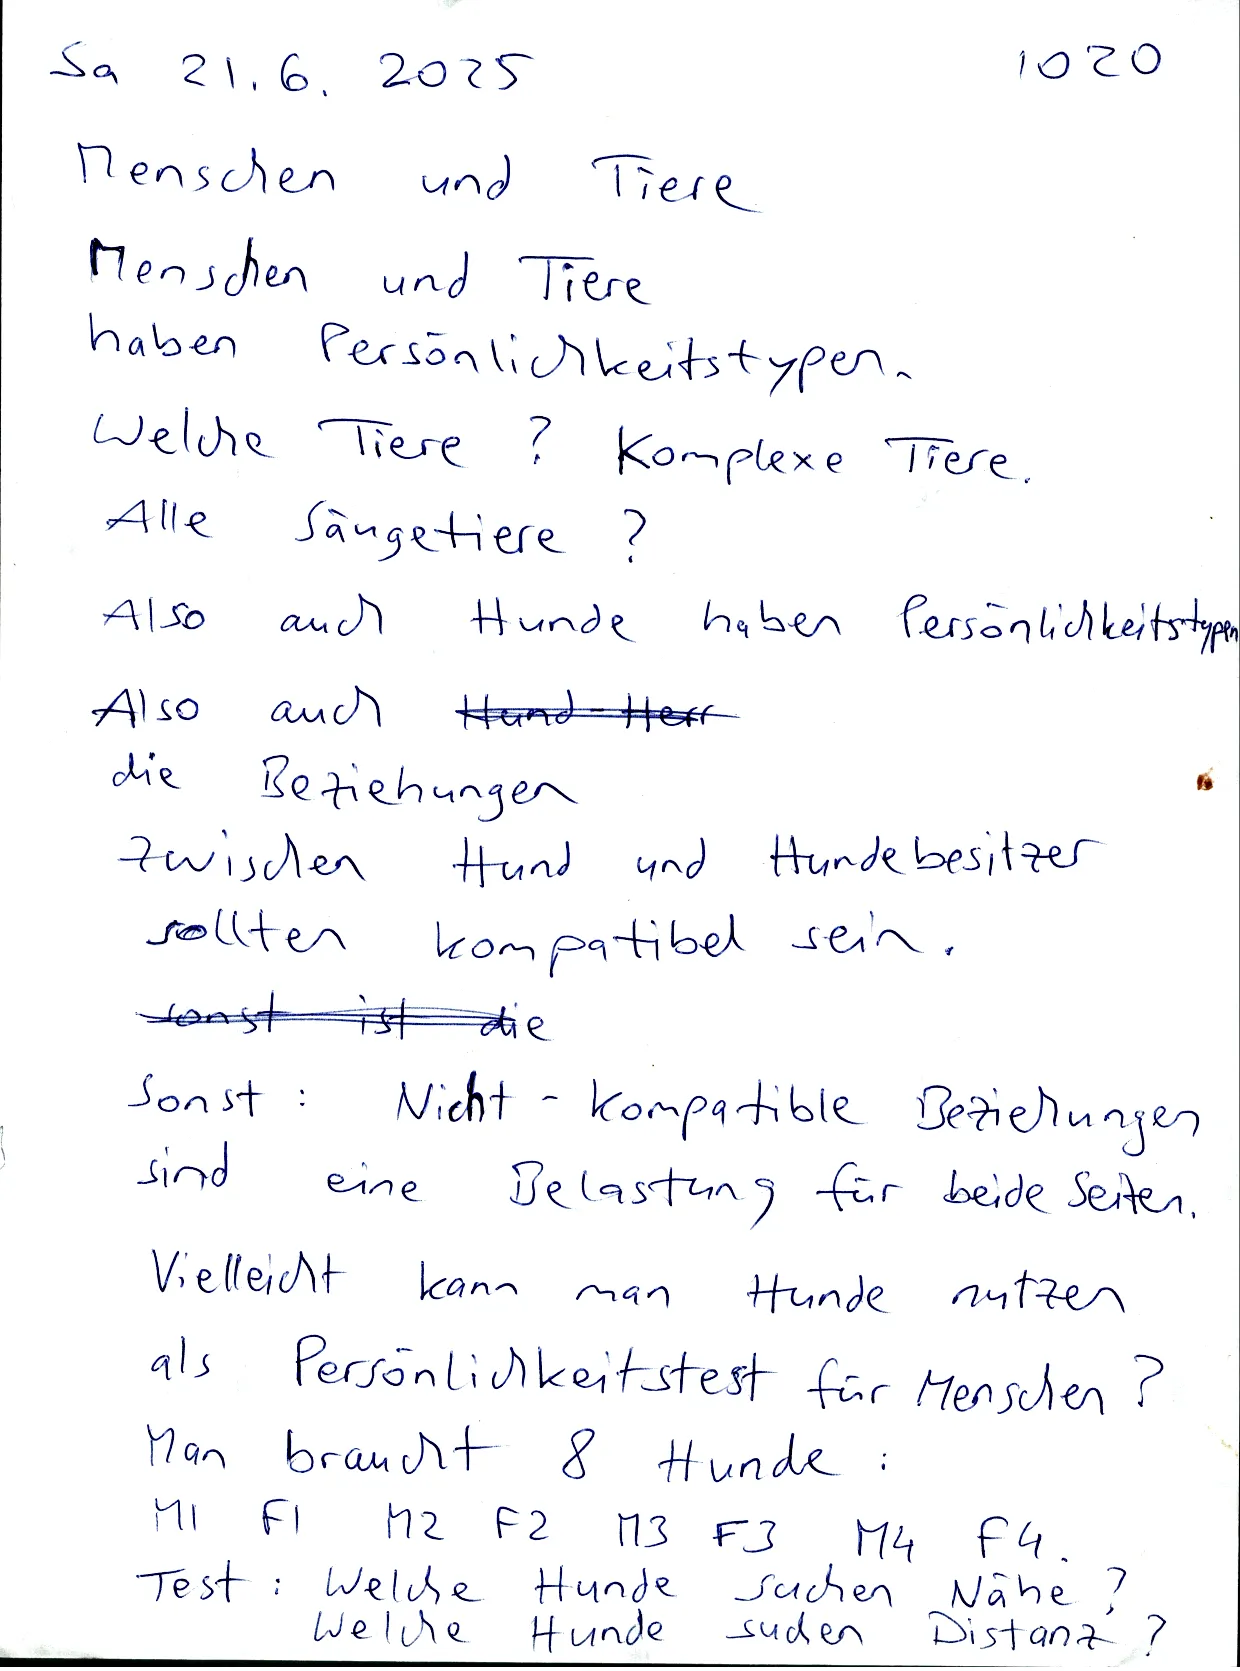 Sa 21.6. 2025 1020
Menschen und Tiere
Menschen und Tiere
haben Persönlichkeitstypen.
Welche Tiere ? Komplexe Tiere.
Alle Säugetiere ?
Also auch Hunde haben Persönlichkeitstypen
Also auch Hund-Herr
die Beziehungen
zwischen Hund und Hundebesitzer
sollten kompatibel sein.
sonst ist die
Sonst : Nicht-kompatible Beziehungen
sind eine Belastung für beide Seiten.
Vielleicht kann man Hunde nutzen
als Persönlichkeitstest für Menschen ?
Man braucht 8 Hunde :
M1 F1 M2 F2 M3 F3 M4 F4.
Test : Welche Hunde suchen Nähe ?
Welche Hunde suchen Distanz ?